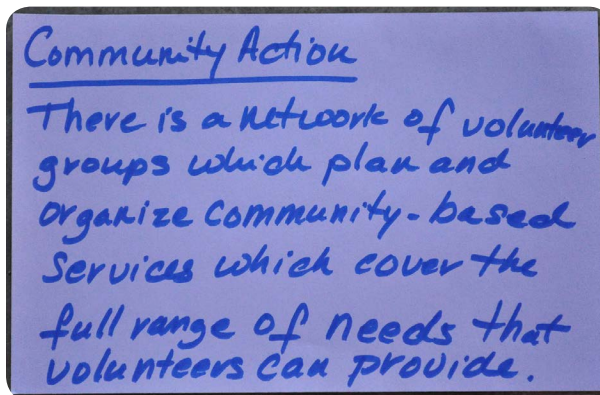 Community Action
There is a network of volunteer
groups which plan and
organize community-based
services which cover the
full range of needs that
volunteers can provide.